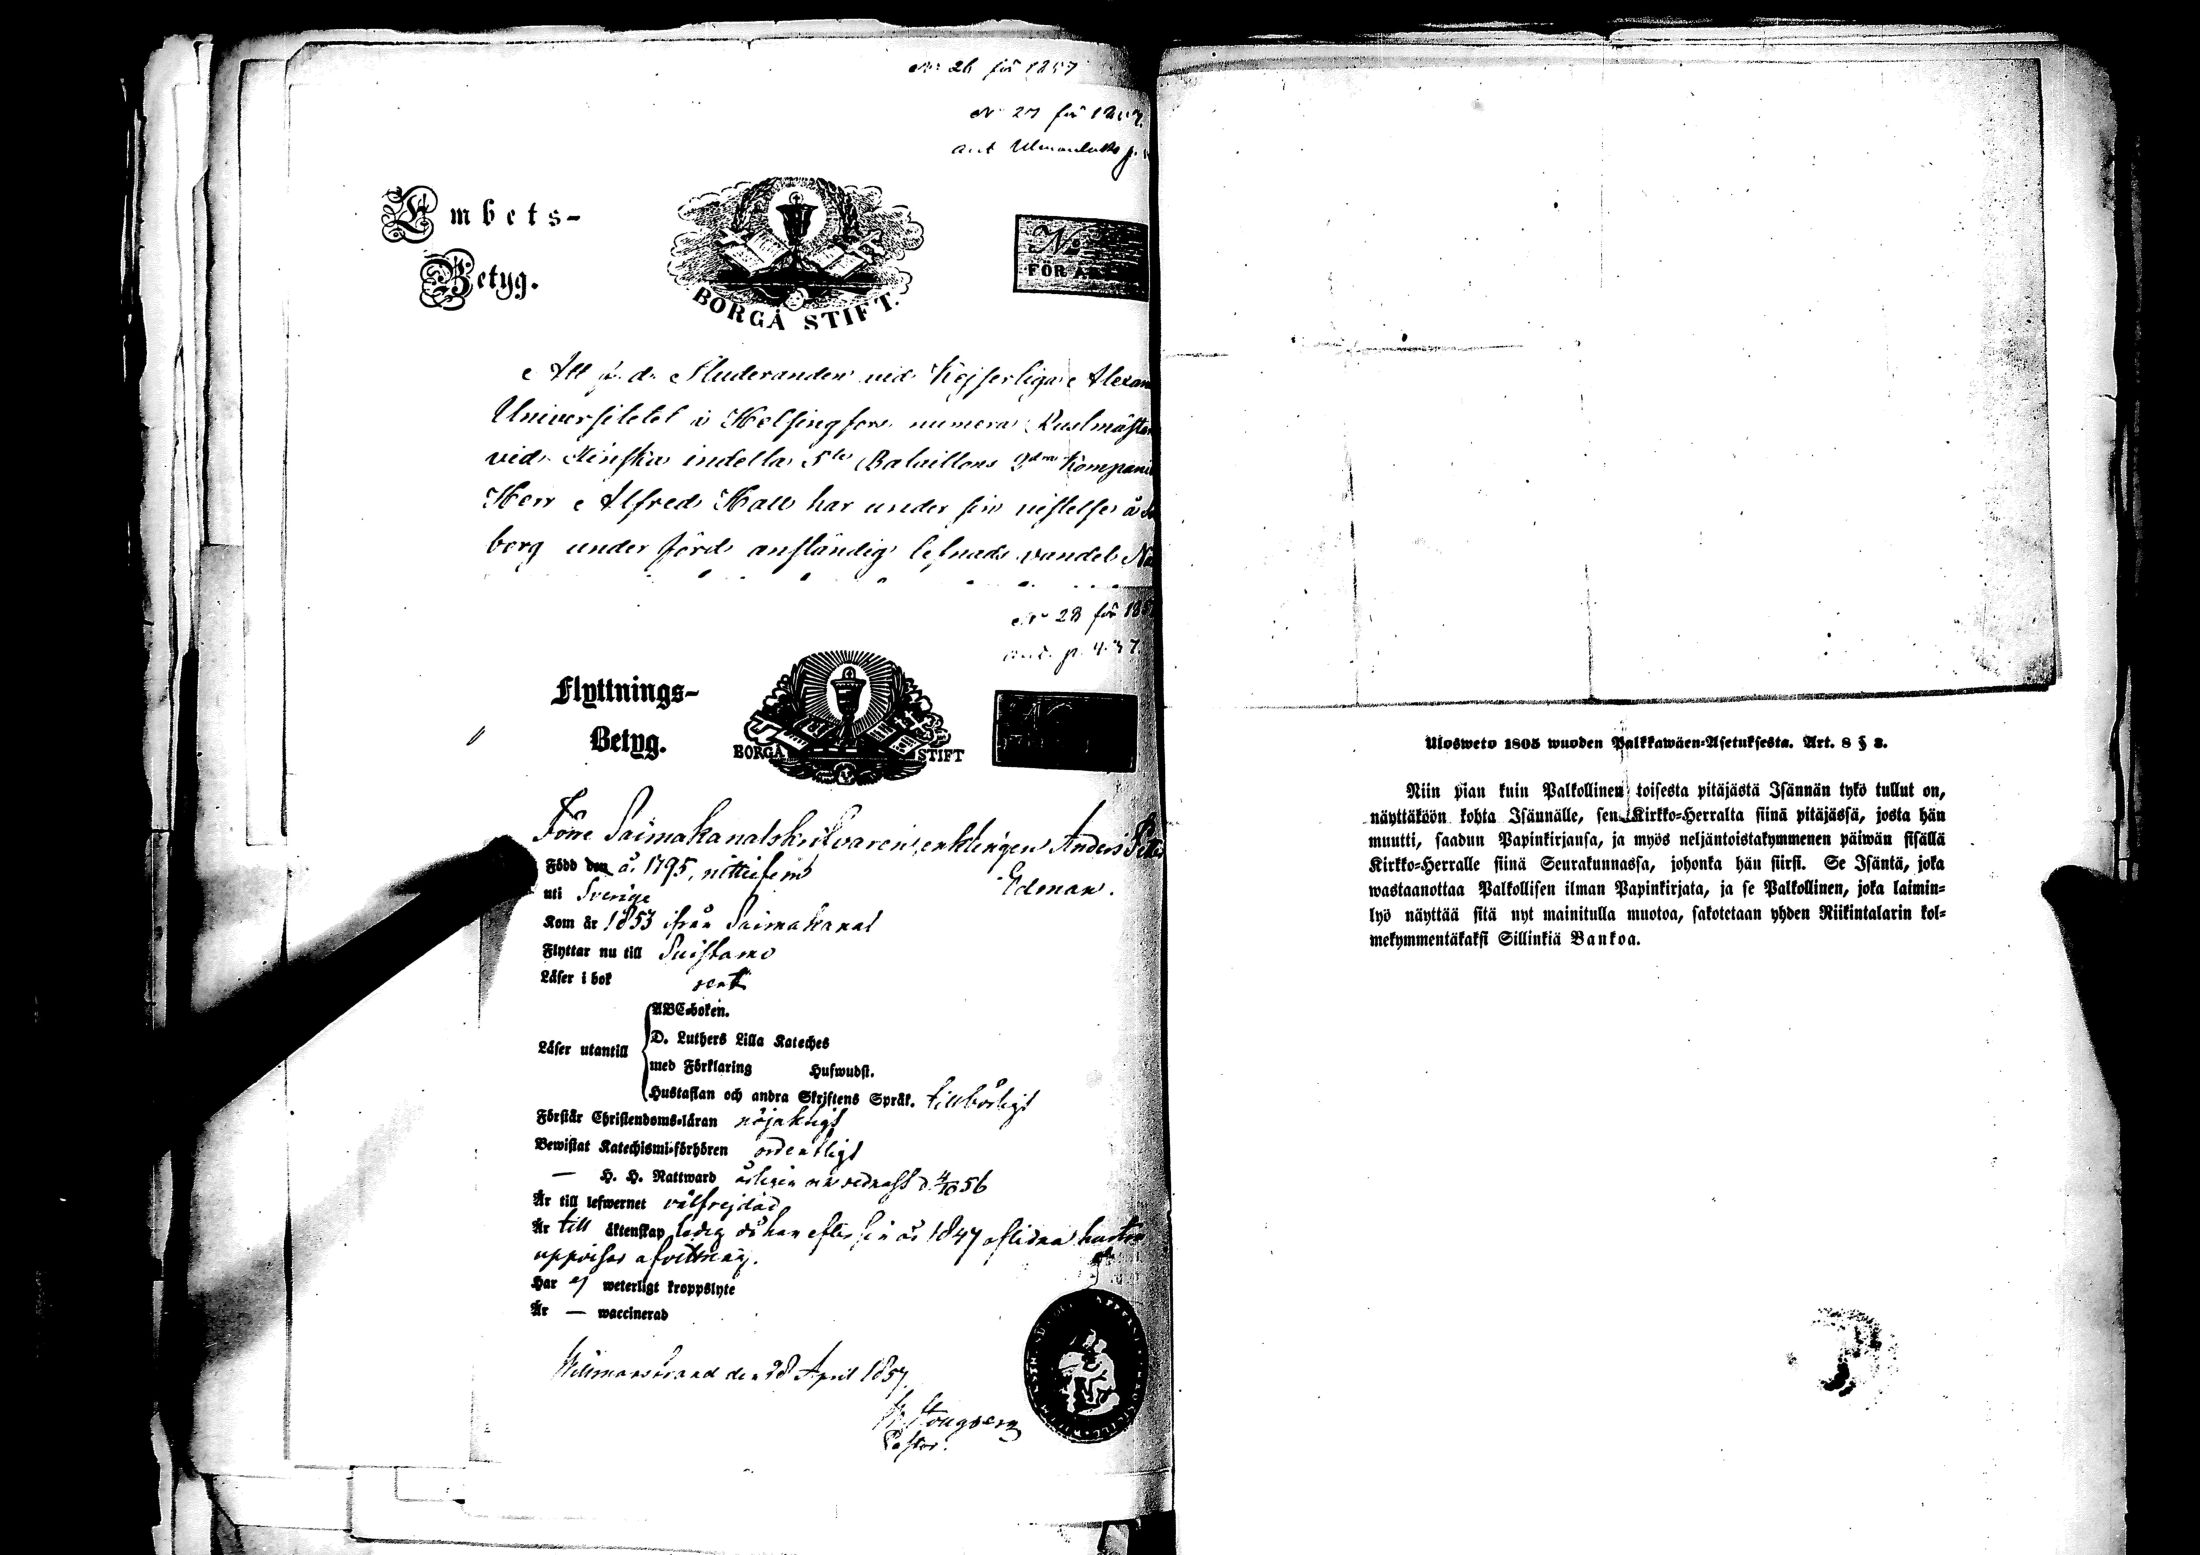 No 26 för 1857
No 27 för 1857.
ant
Embets-
Betyg.
BORGÅ STIFT.
No
FÖR ÅR
Att f. d. Studeranden vid Kejserliga Alexan
Universitetet i Helsingfors numera Rustmästar
vid Finska indelta 5te Bataillons 3dra Kompani
Herr Alfred Hall har under sin vistelse å
borg under förd anständig lefnads vandel
No 28 för 185
ant. p. 437.
Flyttnings-
Betyg.
BORGÅ STIFT
Förre Saimakanalskrifvaren, enklingen Anders Petter
Edman.
Född den å. 1795, nittifem
uti Sverige
Kom år 1853 ifrån Saimakanal
Flyttar nu till Suistamo
Läser i bok rent
Läser utantill
ABC-boken.
D. Luthers Lilla Kateches
med Förklaring Hufwudst.
Hustaflan och andra Skriftens Språk. tillbörligt
Förstår Christendoms-läran nöjaktigt
Bewistat Katechismi-förhören ordentligt
— H. H. Nattward årligen senast d. 4/10 56
Är till lefwernet välfrejdad
Är till äktenskap ledig då han efter sin år 1847 aflidna hustru
uppvisar afvittring.
Har ej weterligt kroppslyte
Är — waccinerad
Willmanstrand den 28 April 1857.
Pastor.
Ulosweto 1805 wuoden Palkkawäen-Asetuksesta. Art. 8 § 8.
Niin pian kuin Palkollinen toisesta pitäjästä Isännän tykö tullut on,
näyttäköön kohta Isännälle, sen Kirkko-Herralta siinä pitäjässä, josta hän
muutti, saadun Papinkirjansa, ja myös neljäntoistakymmenen päiwän sisällä
Kirkko-Herralle siinä Seurakunnassa, johonka hän siirsi. Se Isäntä, joka
wastaanottaa Palkollisen ilman Papinkirjata, ja se Palkollinen, joka laimin-
lyö näyttää sitä nyt mainitulla muotoa, sakotetaan yhden Riikintalarin kol-
mekymmentäkaksi Sillinkiä Bankoa.